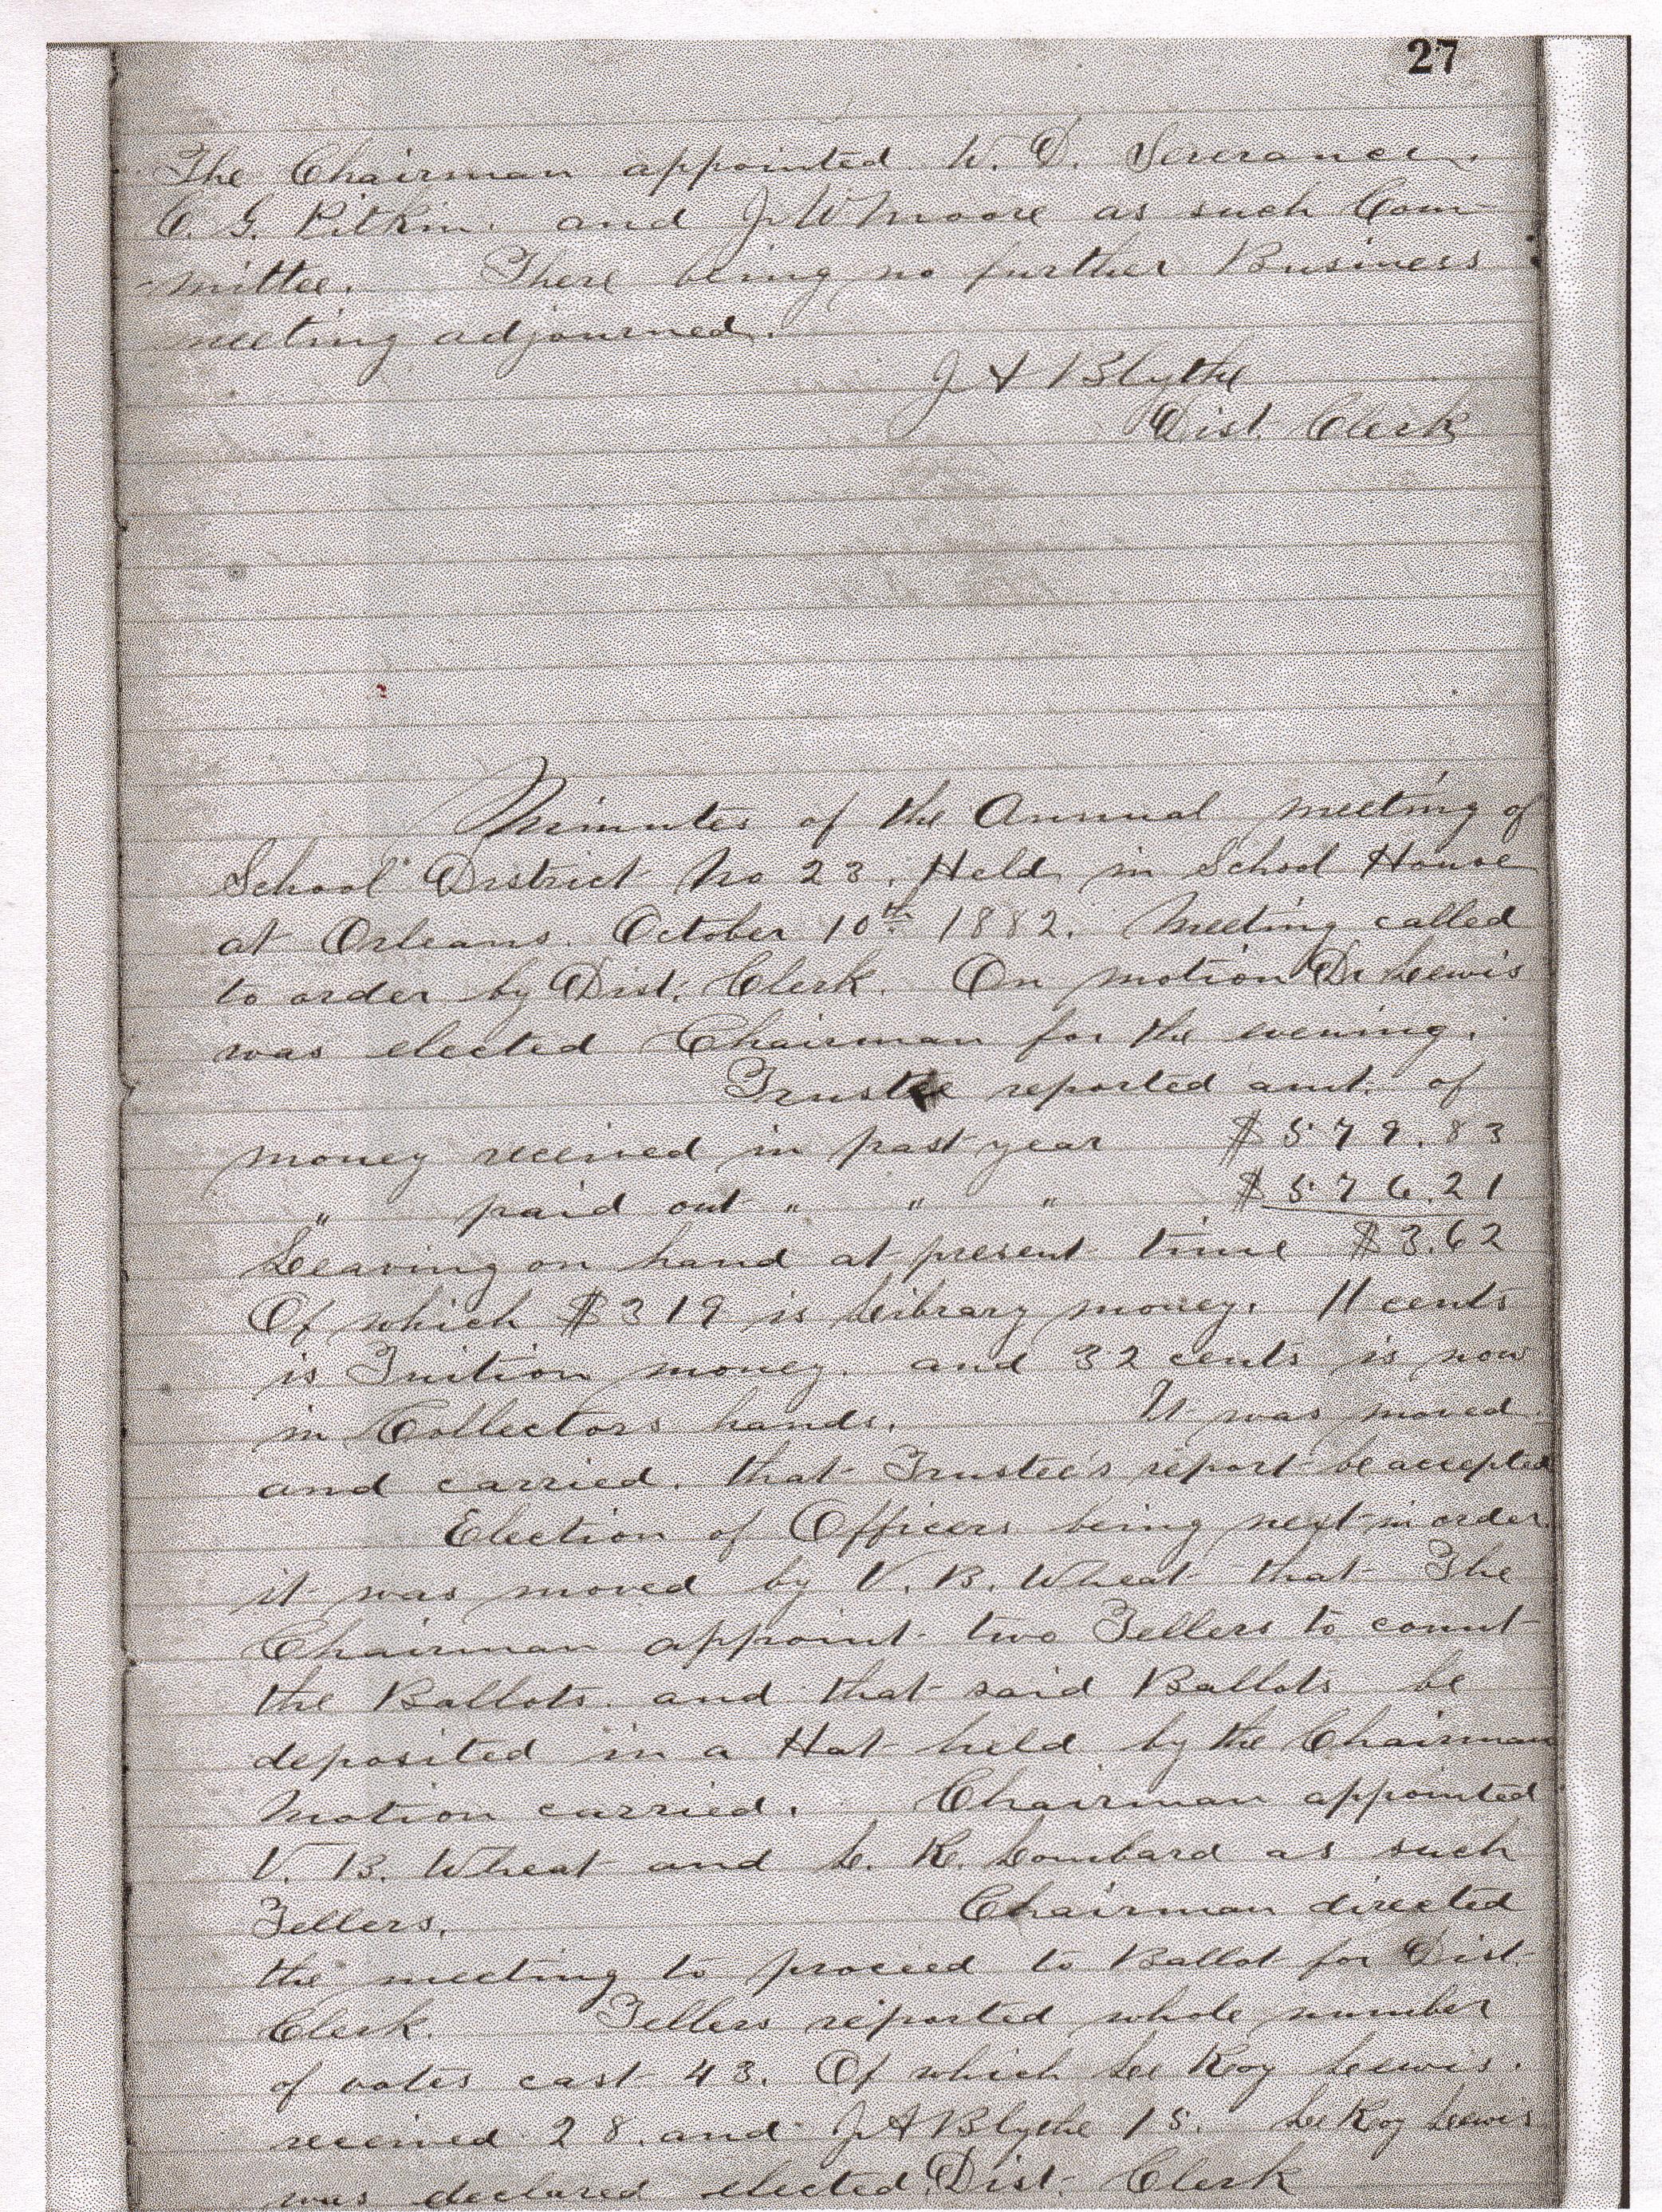 27
The Chairman appointed W. D. Severance.
C. G. Pitkin. and J. W Moore as such Com-
-mittee. There being no further Business
meeting adjourned.
J A Blythe
Dist. Clerk
Minutes of the Annual meeting of
School District No 23. Held in School House
at Orleans. October 10th 1882. Meeting called
to order by Dist. Clerk. On motion Dr Lewis
was elected Chairman for the evening.
Trustee reported amt. of
money received in past year $579.83
" paid out " " " $576.21
Leaving on hand at present time $3.62
Of which $319 is Library money. 11 cents
is Tuition money. and 32 cents is now
in Collectors hands. It was moved
and carried. that Trustee's report be accepted
Election of Officers being next in order.
it was moved by V. B. Wheat that The
Chairman appoint two Tellers to count
the Ballots. and that said Ballots be
deposited in a Hat held by the Chairman
Motion carried. Chairman appointed
V. B. Wheat and L. R. Lombard as such
Tellers. Chairman directed
the meeting to proceed to Ballot for Dist.
Clerk. Tellers reported whole number
of votes cast 43. Of which Le Roy Lewis.
received 28. and J A Blythe 15. Le Roy Lewis
was declared elected Dist. Clerk